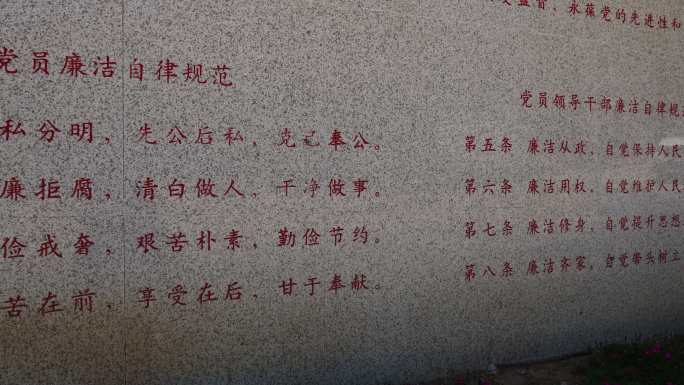 监督，永葆党的先进性和
党员廉洁自律规范
私分明，先公后私，克己奉公。
廉拒腐，清白做人，干净做事。
俭戒奢，艰苦朴素，勤俭节约。
苦在前，享受在后，甘于奉献。
党员领导干部廉洁自律规
第五条 廉洁从政，自觉保持人民
第六条 廉洁用权，自觉维护人民
第七条 廉洁修身，自觉提升思想
第八条 廉洁齐家，自觉带头树立